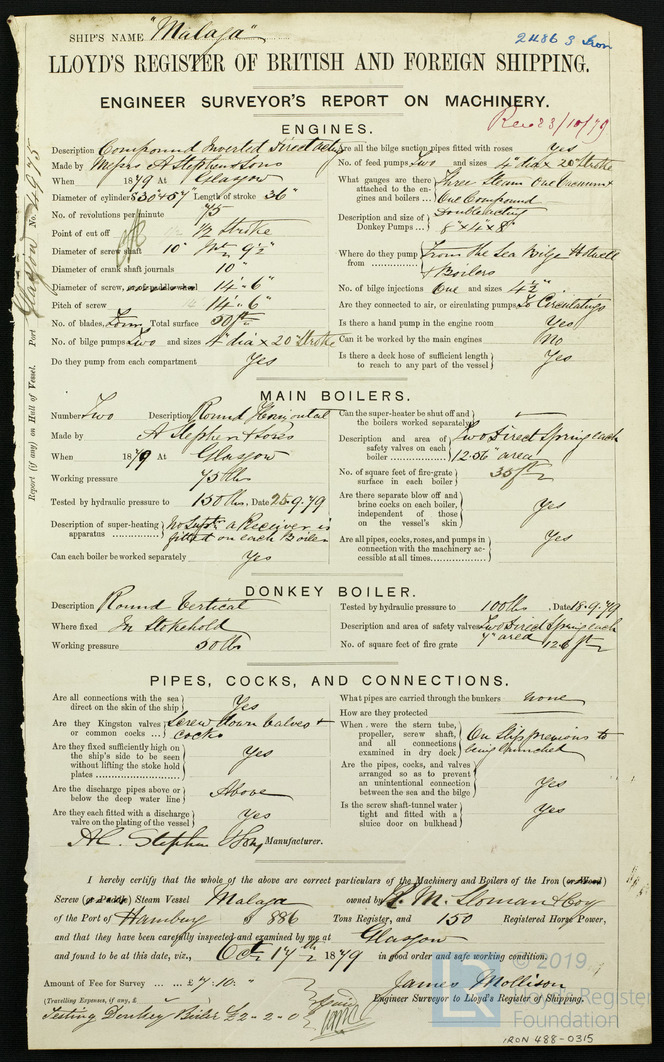 SHIP'S NAME "Malaga"
2486 3 Iron
LLOYD'S REGISTER OF BRITISH AND FOREIGN SHIPPING.
ENGINEER SURVEYOR'S REPORT ON MACHINERY.
Rec 23/10/79
Port Glasgow No. 4975
Report (if any) on Hull of Vessel.
ENGINES.
Description Compound Inverted Direct Acting
Made by Messrs A Stephen & Sons
When 1879 At Glasgow
Diameter of cylinders 30" + 57" Length of stroke 36"
No. of revolutions per minute 75
Point of cut off 1/2 Stroke
Diameter of screw shaft 10" 9 1/2"
Diameter of crank shaft journals 10"
Diameter of screw, or of paddle wheel 14'-6"
Pitch of screw 14'-6"
No. of blades, Four Total surface 50 ft
No. of bilge pumps Two and sizes 4" dia x 20" Stroke
Do they pump from each compartment Yes
Are all the bilge suction pipes fitted with roses Yes
No. of feed pumps, Two and sizes 4" dia x 20" Stroke
What gauges are there attached to the engines and boilers ... Three Steam One Vacuum & One Compound
Description and size of Donkey Pumps ... Double acting 8" x 4" x 8"
Where do they pump from ... From the Sea Bilge Hotwell & Boilers
No. of bilge injections One and sizes 4 1/2"
Are they connected to air, or circulating pumps, To Circulating
Is there a hand pump in the engine room Yes
Can it be worked by the main engines No
Is there a deck hose of sufficient length to reach to any part of the vessel Yes
MAIN BOILERS.
Number Two Description Round Horizontal
Made by A Stephen & Sons
When 1879 At Glasgow
Working pressure 75 lbs
Tested by hydraulic pressure to 150 lbs. Date 25.9.79
Description of super-heating apparatus ... No Supt. a Receiver is fitted on each Boiler
Can each boiler be worked separately Yes
Can the super-heater be shut off and the boilers worked separately
Description and area of safety valves on each boiler ... Two Direct Spring each 12.56" area
No. of square feet of fire-grate surface in each boiler 35 ft
Are there separate blow off and brine cocks on each boiler, independent of those on the vessel's skin Yes
Are all pipes, cocks, roses, and pumps in connection with the machinery accessible at all times ... Yes
DONKEY BOILER.
Description Round Vertical
Where fixed In Stokehold
Working pressure 50 lbs
Tested by hydraulic pressure to 100 lbs. Date 18.9.79
Description and area of safety valves Two Direct Spring each 7" area
No. of square feet of fire grate 12.6 ft
PIPES, COCKS, AND CONNECTIONS.
Are all connections with the sea direct on the skin of the ship Yes
Are they Kingston valves or common cocks ... Screw down Valves & cocks
Are they fixed sufficiently high on the ship's side to be seen without lifting the stoke hold plates Yes
Are the discharge pipes above or below the deep water line Above
Are they each fitted with a discharge valve on the plating of the vessel Yes
What pipes are carried through the bunkers none
How are they protected
When were the stern tube, propeller, screw shaft, and all connections examined in dry dock On Slip previous to being launched
Are the pipes, cocks, and valves arranged so as to prevent an unintentional connection between the sea and the bilge Yes
Is the screw shaft-tunnel water tight and fitted with a sluice door on bulkhead Yes
Stephen & Sons Manufacturer.
I hereby certify that the whole of the above are correct particulars of the Machinery and Boilers of the Iron (or Wood)
Screw (or Paddle) Steam Vessel Malaga owned by R. M. Sloman & Coy
of the Port of Hamburg 886 Tons Register, and 150 Registered Horse Power,
and that they have been carefully inspected and examined by me at Glasgow
and found to be at this date, viz., Oct 17th 1879 in good order and safe working condition.
Amount of Fee for Survey ... ... £7.10. "
James Mollison
(Travelling Expenses, if any, £
Engineer Surveyor to Lloyd's Register of Shipping.
Testing Donkey Boiler £2-2-0
LR © 2019
Lloyd's Register Foundation
IRON 488-0315